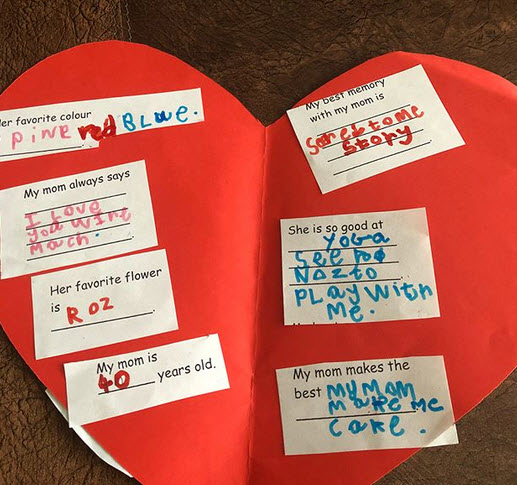 Her favorite colour
PINK red BLue.
My mom always says
I Love
you wine
mach.
Her favorite flower
is ROZ
My mom is
40 years old.
My best memory
with my mom is
Story
She is so good at
YOGa
SEE
NOZTO
PLAY WITH
Me.
My mom makes the
best MY MOM
MaKe Me
Cake.